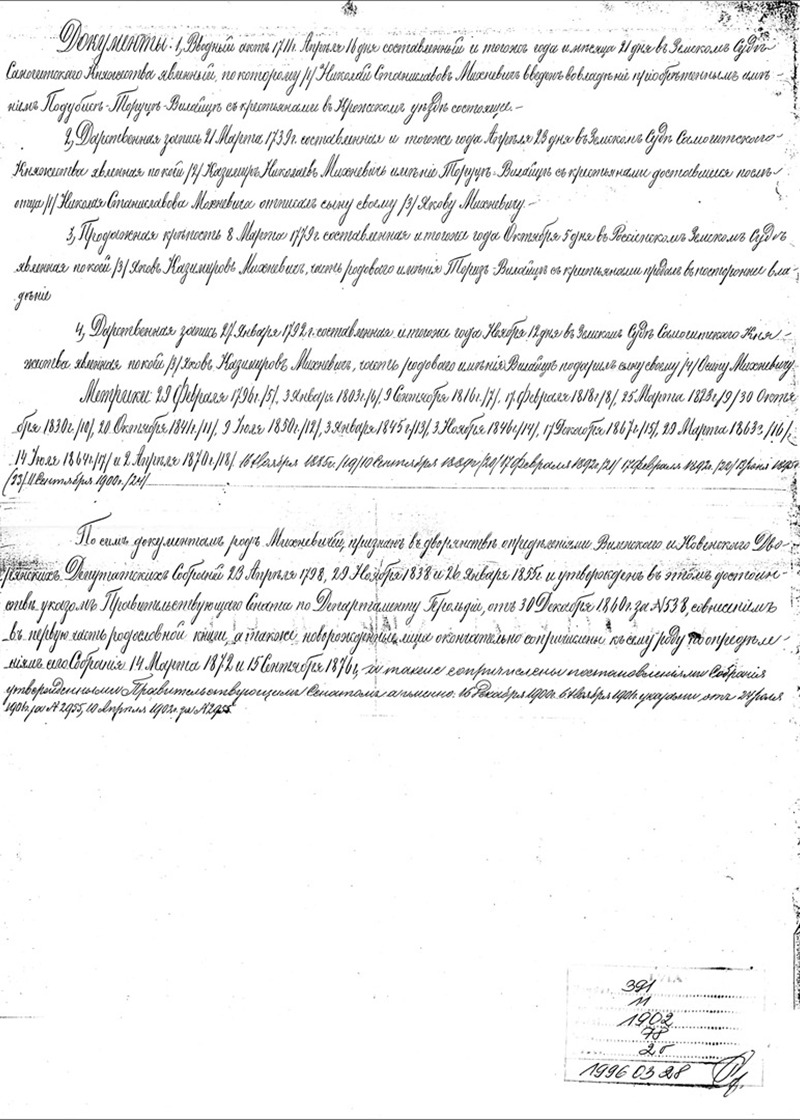 Документы: 1, Вводный актъ 1711г. Апрѣля 16 дня составленный и тогожъ года и мѣсяца 21 дня въ Земскомъ Судѣ
Самогитскаго Княжества явленный, по которому /1/ Николай Станиславовъ Михневичъ введенъ во владѣніе пріобрѣтеннымъ имѣ-
ніемъ Подубись-Торуцъ-Вилайцъ съ крестьянами въ Крожскомъ уѣздѣ состоящее.-
2, Дарственная запись 21 Марта 1739г. составленная и тогоже года Апрѣля 23 дня въ Земскомъ Судѣ Самогитскаго
Княжества явленная по коей /2/ Казимиръ Николаевъ Михневичъ имѣніе Торуцъ-Вилайцъ съ крестьянами доставшееся послѣ
отца /1/ Николая Станиславова Михневича отписалъ сыну своему /3/ Якову Михневичу.-
3, Продажная крѣпость 8 Марта 1779г. составленная и тогоже года Октября 5 дня въ Россіенскомъ Земскомъ Судѣ
явленная по коей /3/ Яковъ Казимировъ Михневичъ, часть родоваго имѣнія Торуцъ-Вилайцъ съ крестьянами продалъ въ постороннее вла-
дѣніе
4, Дарственная запись 27 Января 1792г. составленная и тогоже года Ноября 12 дня въ Земскомъ Судѣ Самогитскаго Кня-
жества явленная по коей /3/ Яковъ Казимировъ Михневичъ, часть родоваго имѣнія Вилайцъ подарилъ сыну своему /4/ Осипу Михневичу.
Метрики: 29 Февраля 1796г. /5/, 3 Января 1803г. /6/, 9 Сентября 1816г. /7/, 17 Февраля 1818г. /8/, 25 Марта 1823г. /9/ 30 Октя-
бря 1830г. /10/, 20 Октября 1841г. /11/, 9 Іюля 1850г. /12/, 3 Января 1845г. /13/, 3 Ноября 1846г. /14/, 17 Декабря 1867г. /15/, 29 Марта 1863г. /16/
14 Іюля 1864г. /17/ и 2 Апрѣля 1870г. /18/. 16 Ноября 1885г. /19/ 10 Сентября 1889г. /20/ 17 Февраля 1892г. /21/ 17 Февраля 1892г. /22/ 13 Іюня 1895г.
/23/ 11 Сентября 1900г. /24/
По симъ документамъ родъ Михневичей, признанъ въ дворянствѣ опредѣленіями Виленскаго и Ковенскаго Дво-
рянскихъ Депутатскихъ Собраній 23 Апрѣля 1798, 29 Ноября 1838 и 26 Января 1855г. и утвержденъ въ этомъ достоин-
ствѣ указомъ Правительствующаго Сената по Департаменту Герольдіи, отъ 30 Декабря 1860г. за N 538, со внесеніемъ
въ первую часть родословной книги, а также новорожденныя лица окончательно сопричислены къ сему роду по опредѣле-
ніямъ сего Собранія 14 Марта 1872 и 15 Сентября 1876г., а также сопричислены постановленіями Собранія
утвержденными Правительствующимъ Сенатомъ а именно: 16 Декабря 1900г. 6 Ноября 1901г. указами отъ 24 Іюля
1901г. за N 2955, 10 Апрѣля 1902г. за N
391
11
1902
78
2 б
1996 03 28